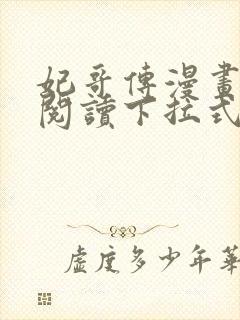 妃哥傳漫畫
閱讀下拉式
虛度多少年華